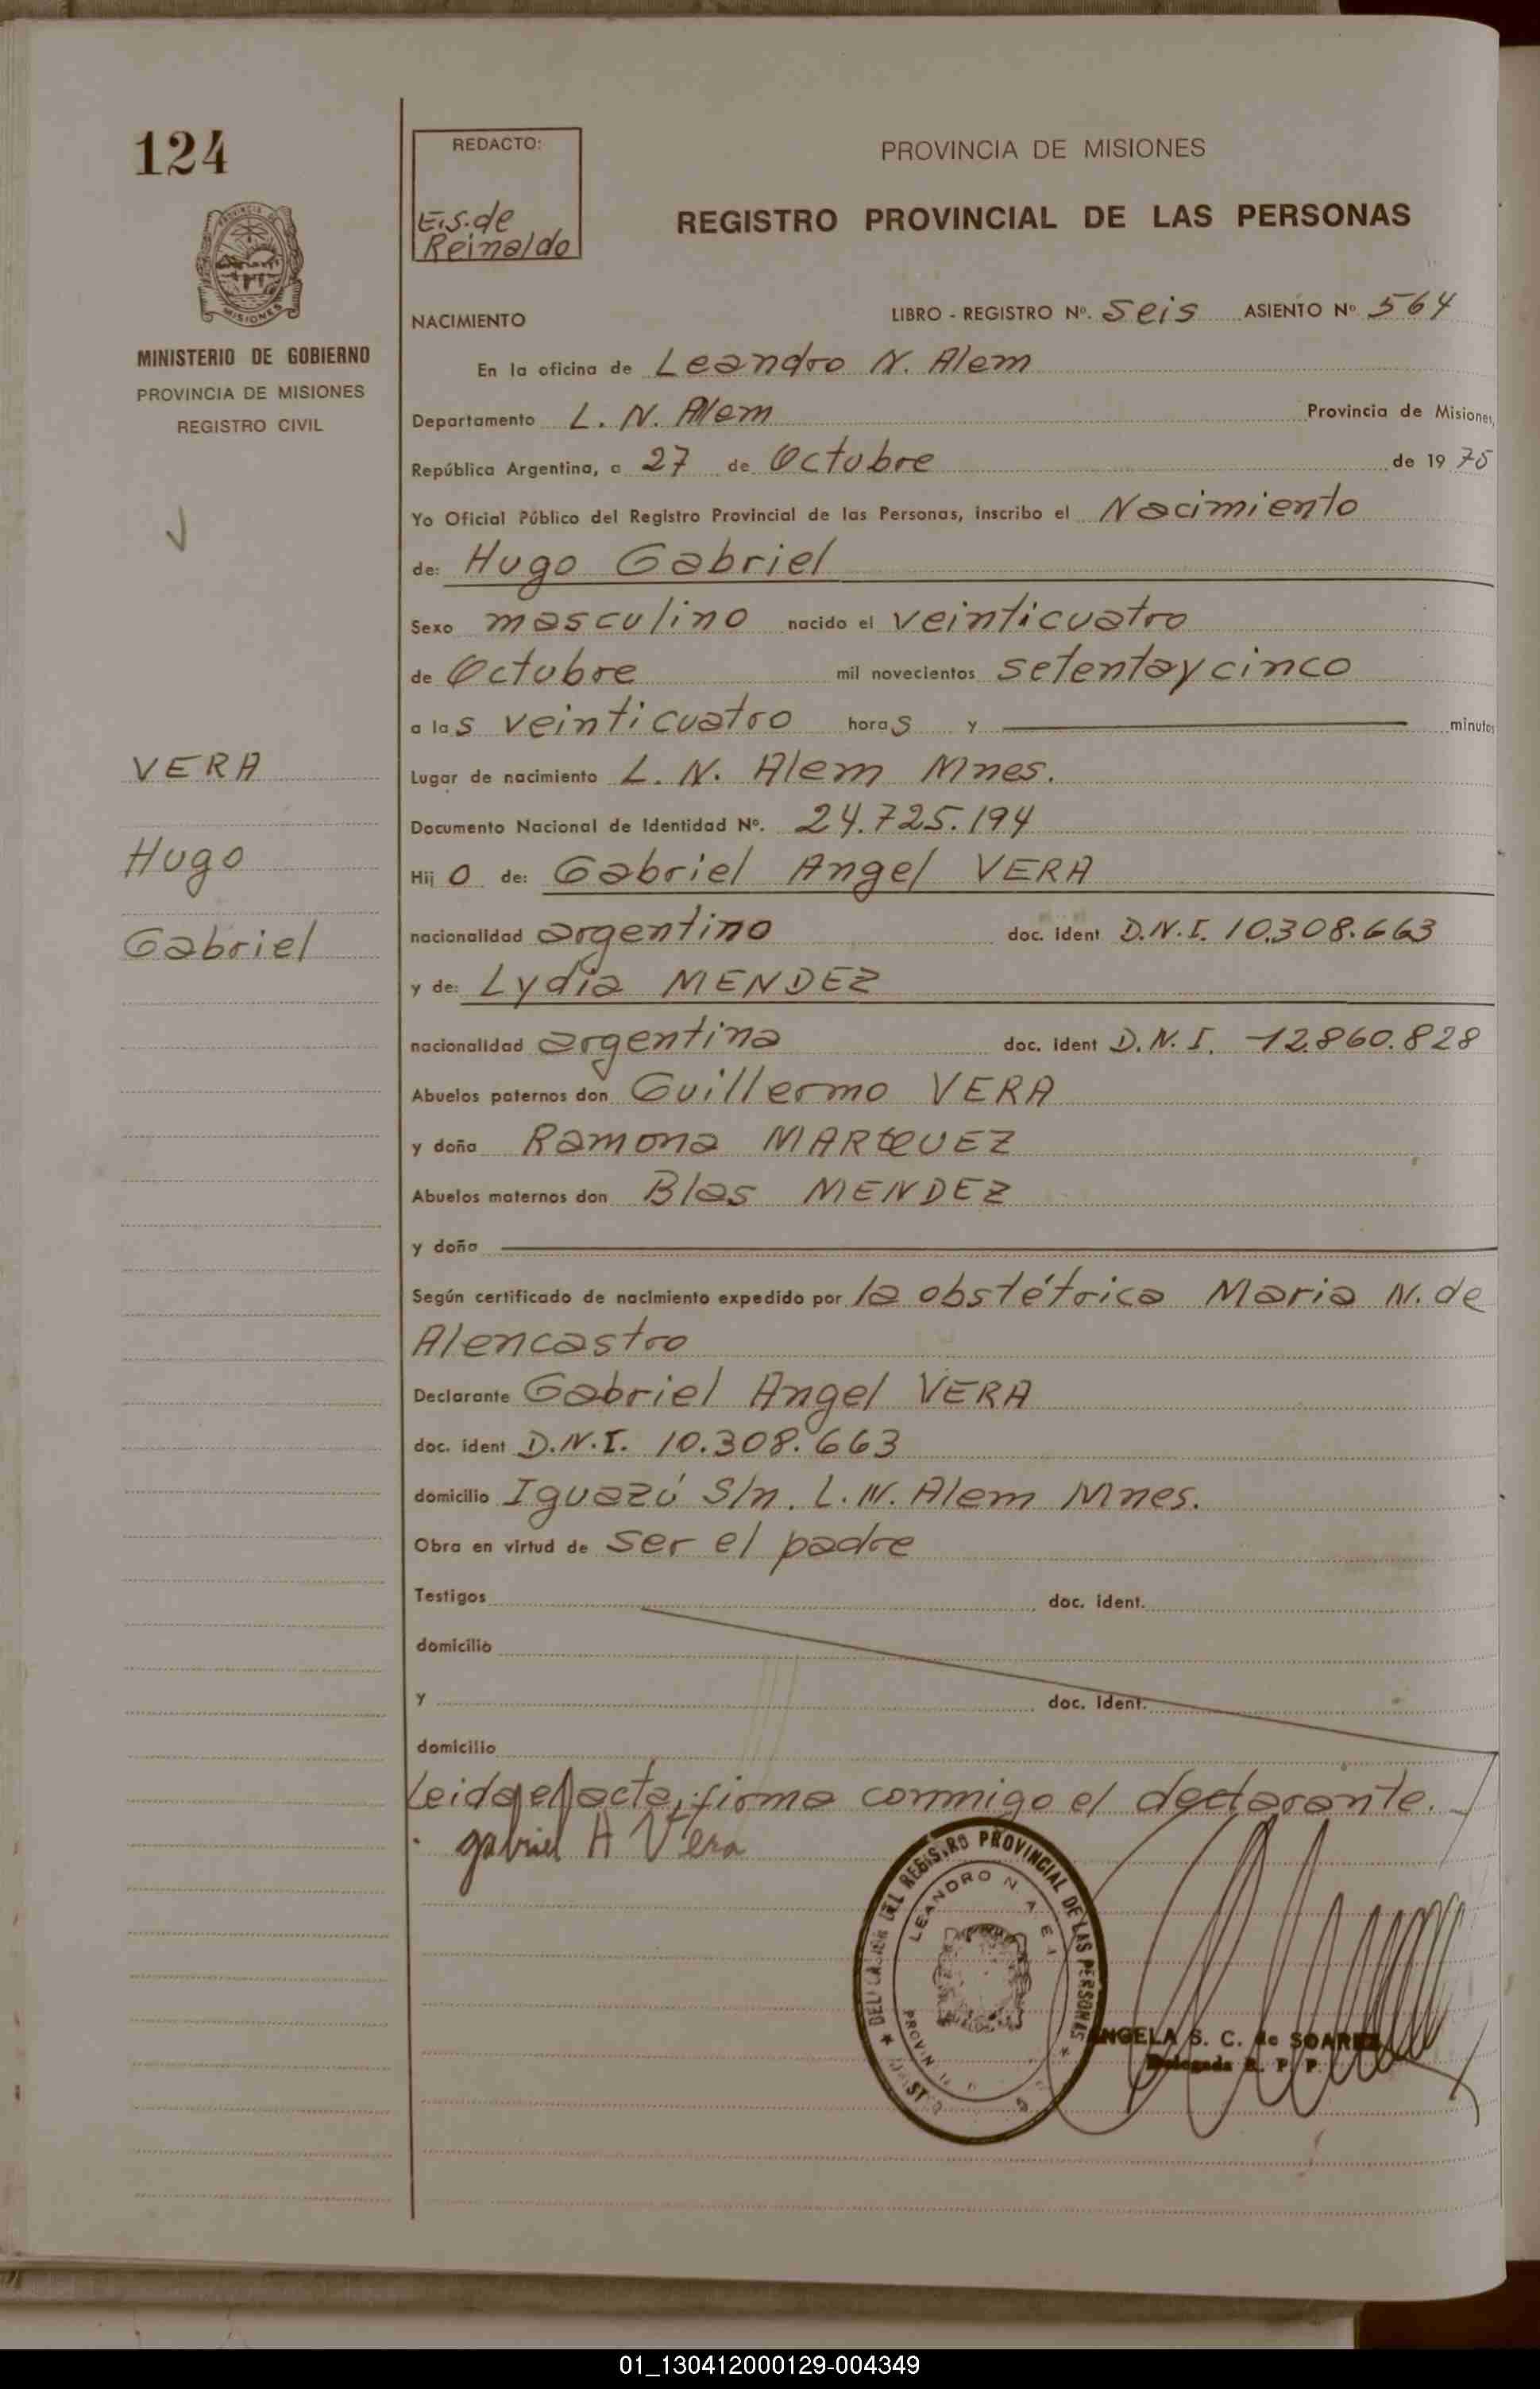 124
REDACTO:
E.S. de
Reinaldo
PROVINCIA DE MISIONES
REGISTRO PROVINCIAL DE LAS PERSONAS
MISIONES
MINISTERIO DE GOBIERNO
PROVINCIA DE MISIONES
REGISTRO CIVIL
NACIMIENTO
LIBRO - REGISTRO Nº. Seis ASIENTO Nº 564
En la oficina de Leandro N. Alem
Departamento L. N. Alem Provincia de Misiones,
República Argentina, a 27 de Octubre de 1975
Yo Oficial Público del Registro Provincial de las Personas, inscribo el Nacimiento
de: Hugo Gabriel
Sexo masculino nacido el veinticuatro
de Octubre mil novecientos setentaycinco
a las veinticuatro horas y minutos
VERA
Lugar de nacimiento L. N. Alem Mnes.
Documento Nacional de Identidad Nº. 24.725.194
Hugo
Hijo de: Gabriel Angel VERA
Gabriel
nacionalidad argentino doc. ident D.N.I. 10.308.663
y de: Lydia MENDEZ
nacionalidad argentina doc. ident D.N.I. 12.860.828
Abuelos paternos don Guillermo VERA
y doña Ramona MARQUEZ
Abuelos maternos don Blas MENDEZ
y doña
Según certificado de nacimiento expedido por la obstétrica Maria N. de
Alencastro
Declarante Gabriel Angel VERA
doc. ident D.N.I. 10.308.663
domicilio Iguazú S/n. L. N. Alem Mnes.
Obra en virtud de ser el padre
Testigos doc. ident.
domicilio
y doc. ident.
domicilio
Leida el acta, firma conmigo el declarante.
gabriel A Vera
DELEGACION DEL REGISTRO PROVINCIAL DE LAS PERSONAS
LEANDRO N. ALEM
ANGELA S. C. de SOAREZ
Delegada R. P. P.
01_130412000129-004349